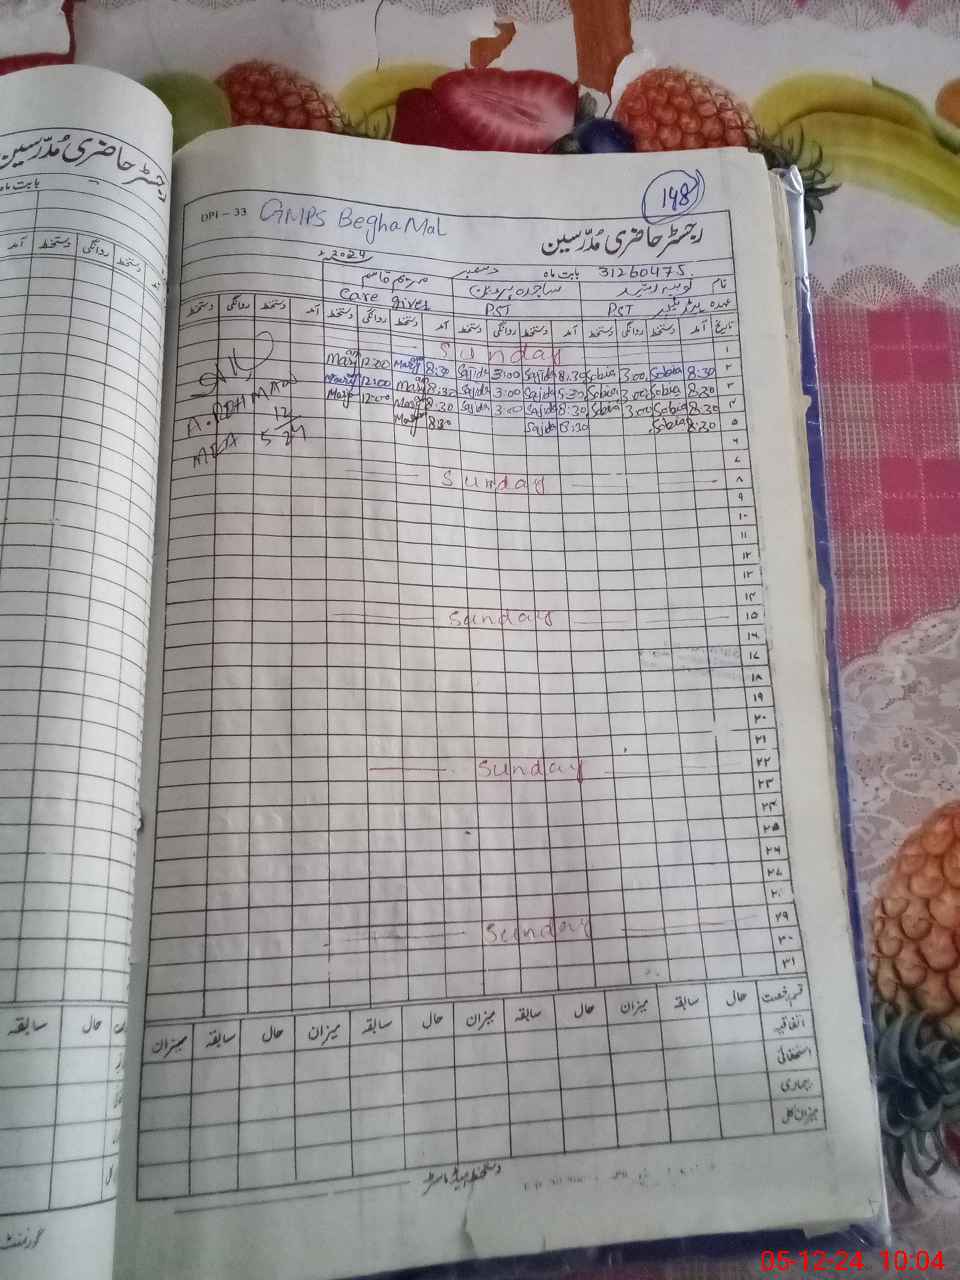 رجسٹر حاضری مُدرّسین
148
DPI - 33 GMPS BeghaMal
رجسٹر حاضری مُدرّسین
31260475 بابت ماہ دسمبر 2024ء
نام ساجدہ پروین مریم قاسم
عہدہ PST PST Care giver
تاریخ آمد دستخط روانگی دستخط آمد دستخط روانگی دستخط آمد دستخط روانگی دستخط آمد دستخط روانگی دستخط
۱ Sunday
۲ 8:30 Sobia 3:00 Sobia 8:30 Sajida 3:00 Sajida 8:30 Mary 12:00 Mary
۳ 8:30 Sobia 3:00 Sobia 8:30 Sajida 3:00 Sajida 8:30 Mary 12:00 Mary
۴ 8:30 Sobia 3:00 Sobia 8:30 Sajida 3:00 Sajida 8:30 Mary 12:00 Mary
۵ 8:30 Sobia 8:30 Sajida 8:30 Mary
A.REHMAN
MEA 5/12/24
۶
۷
۸ Sunday
۹
۱۰
۱۱
۱۲
۱۳
۱۴
۱۵ Sunday
۱۶
۱۷
۱۸
۱۹
۲۰
۲۱
۲۲ Sunday
۲۳
۲۴
۲۵
۲۶
۲۷
۲۸
۲۹ Sunday
۳۰
۳۱
قسم رخصت حال سابقہ میزان حال سابقہ میزان حال سابقہ میزان حال سابقہ میزان
اتفاقیہ
استحقاقی
بیماری
میزان کل
دستخط ہیڈ ماسٹر
05-12-24 10:04